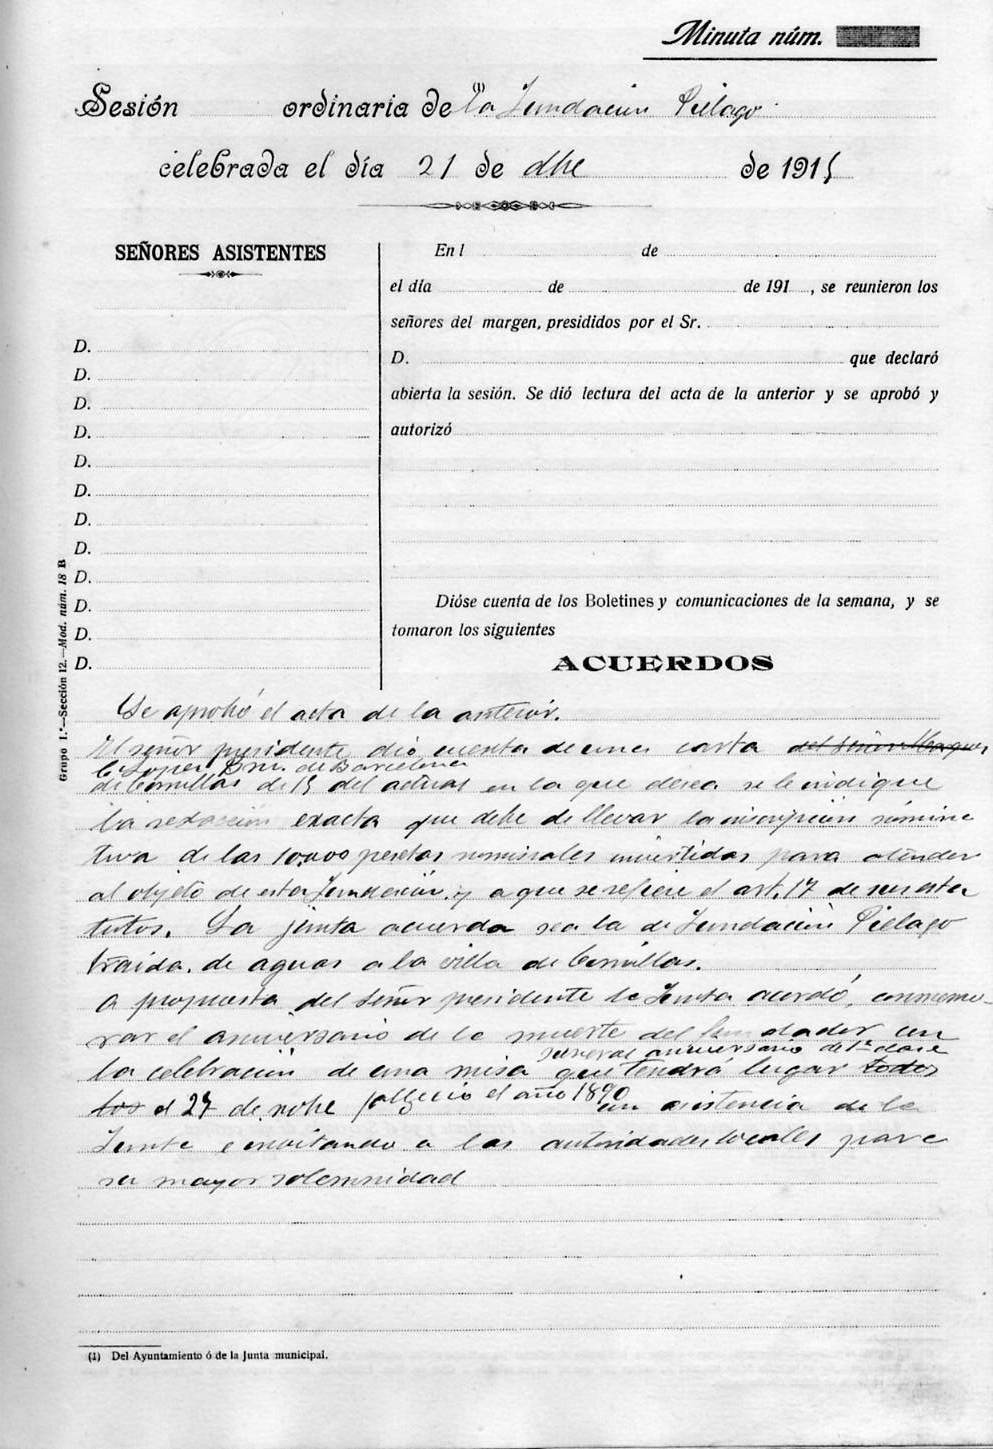 Minuta núm.
Sesión ordinaria de (1) la Fundación Piélago
celebrada el día 21 de dbe de 1915
SEÑORES ASISTENTES
D.
D.
D.
D.
D.
D.
D.
D.
D.
D.
D.
D.
Grupo 1.º—Sección 12.—Mod. núm. 18 B
En l de
el día de de 191 , se reunieron los
señores del margen, presididos por el Sr.
D. que declaró
abierta la sesión. Se dió lectura del acta de la anterior y se aprobó y
autorizó
Dióse cuenta de los Boletines y comunicaciones de la semana, y se
tomaron los siguientes
ACUERDOS
Se aprobó el acta de la anterior.
El señor presidente dió cuenta de una carta del Señor Marques
C. Lopez Bru. de Barcelona
de Comillas de 15 del actual en la que desea se le indique
la redaccion exacta que debe de llevar la inscripción nomina
tiva de las 10.000 pesetas nominales invertidas para atender
al objeto de esta Fundación. y a que se refiere el art. 17 de sus esta
tutos. La junta acuerda sea la de Fundación Piélago
traida de aguas a la villa de Comillas.
A propuesta del Señor presidente la Junta acordó, conmemo-
rar el aniversario de la muerte del fundador con
funeral aniversario de 1ª clase
la celebración de una misa que tendrá lugar todos
los el 27 de nobe falleció el año 1890 con asistencia de la
Junta e invitando a las autoridades locales para
su mayor solemnidad
(1) Del Ayuntamiento ó de la Junta municipal.